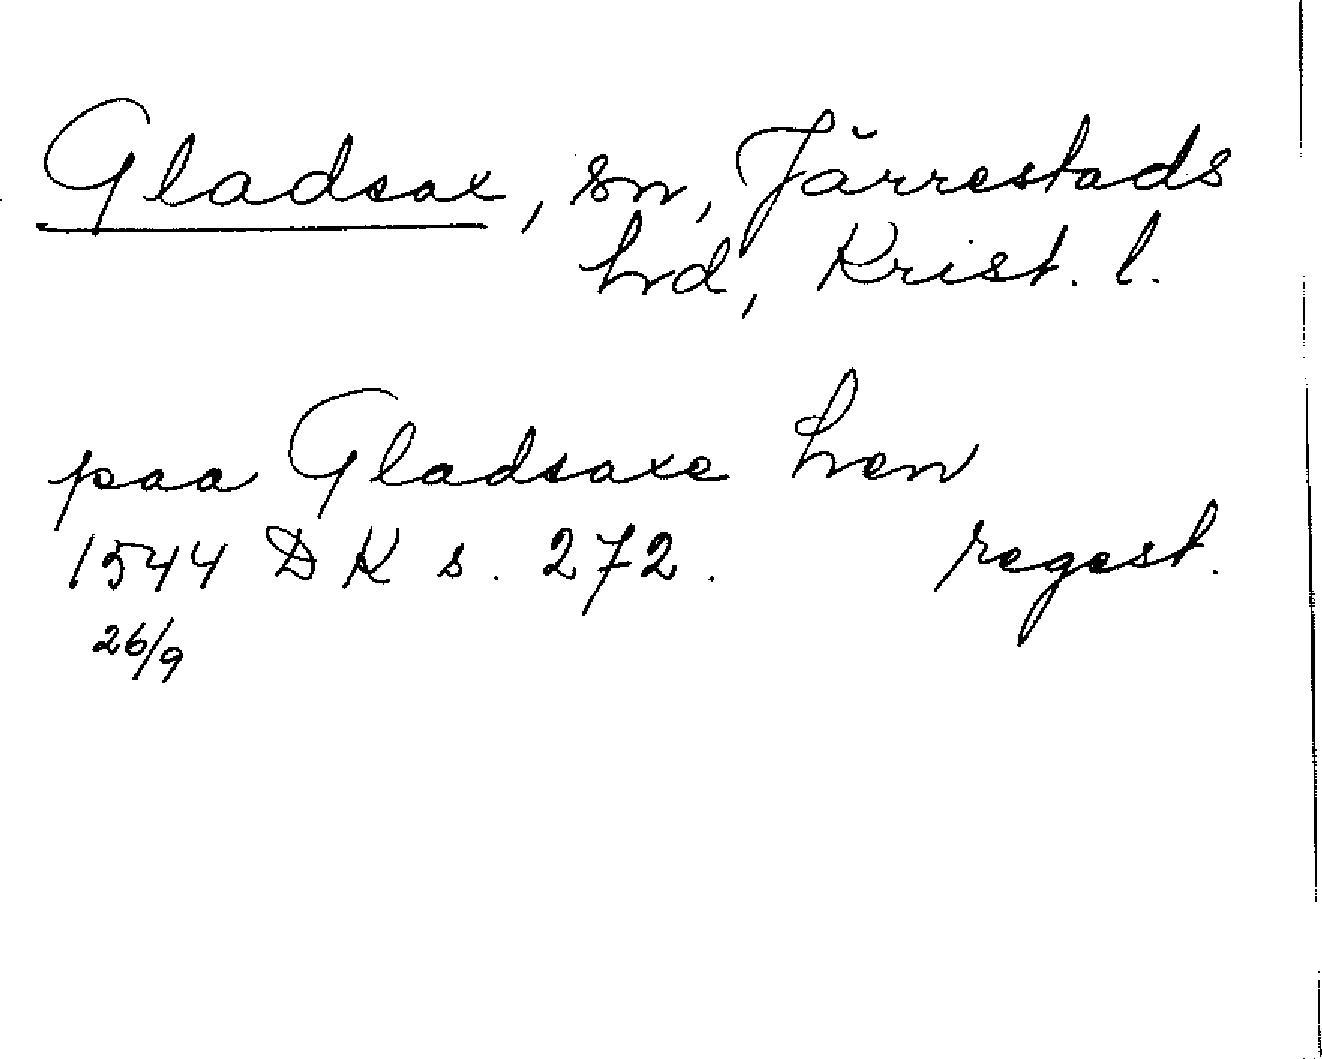 Gladsax, sn, Järrestads
hd, Krist. l.
paa Gladsaxe hen
1544 DK s. 272. regest.
26/9